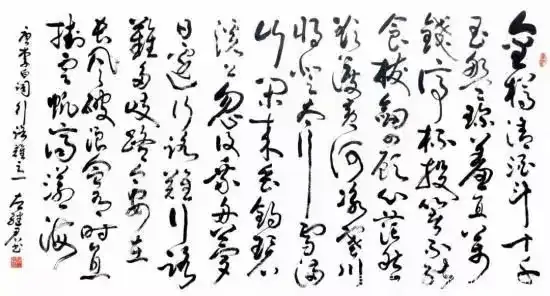 金樽清酒斗十千
玉盤珍羞直萬
錢停杯投箸不能
食拔劍四顧心茫然
欲渡黄河冰塞川
將登太行雪滿
山閑来垂釣碧
溪上忽復乘舟夢
日邊行路難行路
難多歧路今安在
長風破浪會有時直
掛雲帆濟滄海
唐李白詞行路難之一